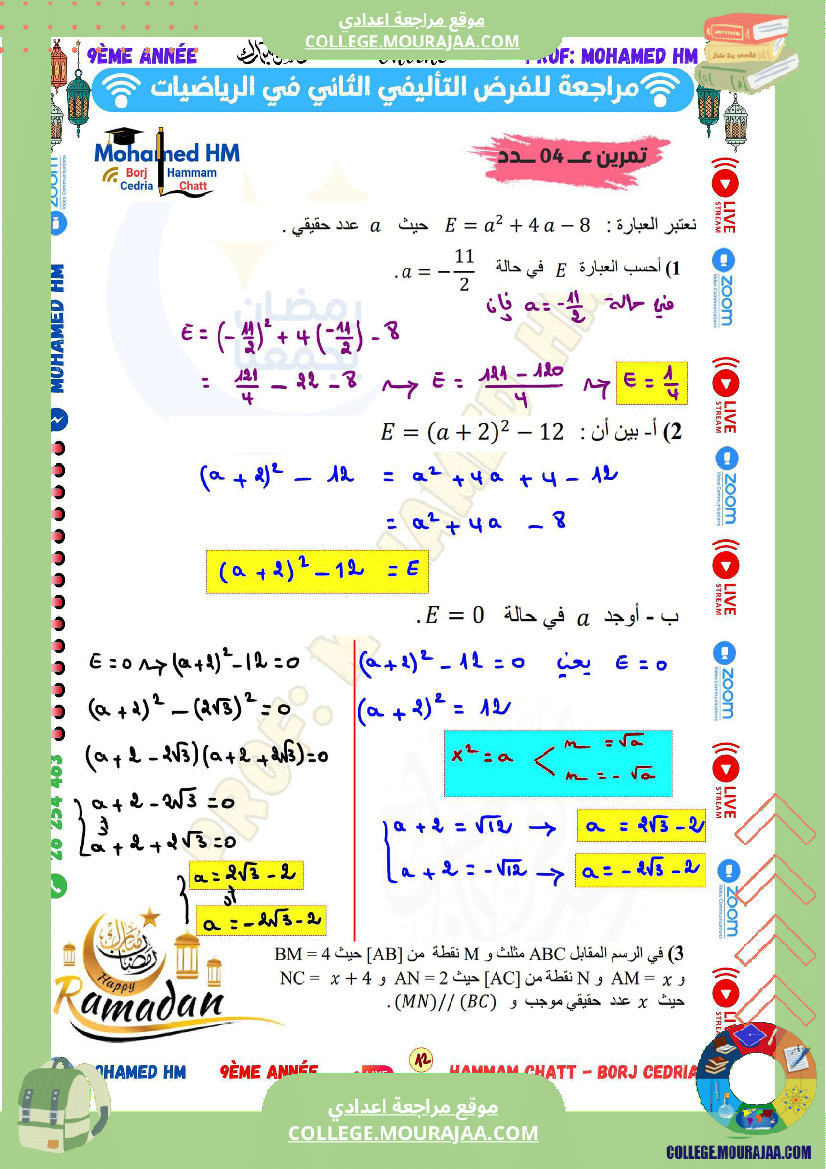 موقع مراجعة اعدادي
COLLEGE.MOURAJAA.COM
9ÈME ANNÉE
PROF: MOHAMED HM
مراجعة للفرض التأليفي الثاني في الرياضيات
Mohamed HM
Borj Cedria
Hammam Chatt
تمرين عـــ 04 ــدد
نعتبر العبارة : E = a² + 4 a − 8 حيث a عدد حقيقي .
1) أحسب العبارة E في حالة a = −11/2 .
في حالة a = -11/2 فإن
E = (-11/2)² + 4(-11/2) - 8
= 121/4 - 22 - 8 ⇝ E = 121 - 120/4 ⇝ E = 1/4
2) أ- بين أن : E = (a + 2)² − 12
(a + 2)² - 12 = a² + 4a + 4 - 12
= a² + 4a - 8
(a + 2)² - 12 = E
ب - أوجد a في حالة E = 0 .
(a+2)² - 12 = 0 يعني E = 0
(a + 2)² = 12
x² = a
x = √a
x = - √a
a + 2 = √12 → a = 2√3 - 2
a + 2 = -√12 → a = - 2√3 - 2
E = 0 ⇝ (a+2)² - 12 = 0
(a + 2)² - (2√3)² = 0
(a + 2 - 2√3)(a + 2 + 2√3) = 0
a + 2 - 2√3 = 0
أو
a + 2 + 2√3 = 0
a = 2√3 - 2
أو
a = - 2√3 - 2
3) في الرسم المقابل ABC مثلث و M نقطة من [AB] حيث BM = 4
و AM = x و N نقطة من [AC] حيث AN = 2 و NC = x + 4
حيث x عدد حقيقي موجب و (MN)// (BC) .
رمضان يجمعنا
PROF: MOHAMED HM
رمضان مبارك
Happy
Ramadan
zoom
Video Communications
MOHAMED HM
26 254 463
LIVE
STREAM
zoom
Video Communications
LIVE
STREAM
zoom
Video Communications
LIVE
STREAM
zoom
Video Communications
LIVE
STREAM
zoom
Video Communications
LIVE
STREAM
12
OHAMED HM
9ÈME ANNÉE
HAMMAM CHATT - BORJ CEDRIA
موقع مراجعة اعدادي
COLLEGE.MOURAJAA.COM
COLLEGE.MOURAJAA.COM